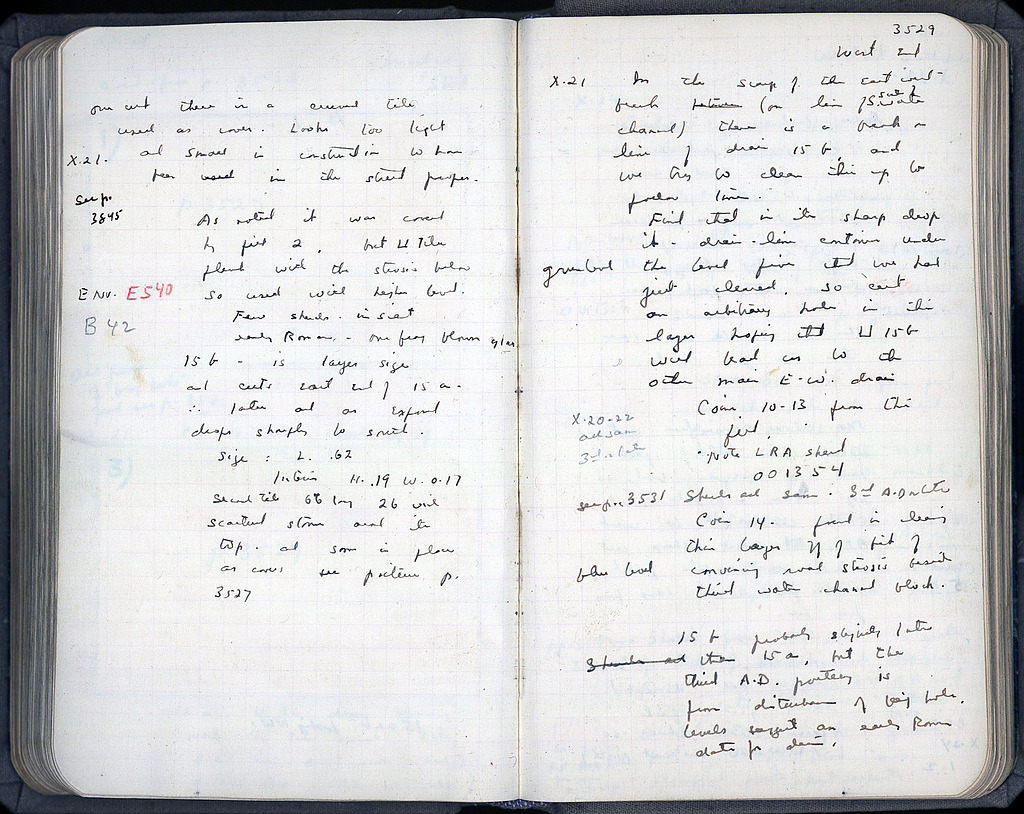 our cut there is a curved tile
used as cover. Looks too light
X.21. and small in construction to have
been used in the street proper.
see p.
3845 As noted it was covered
by fill 2, but 4 tiles
flush with the stosis below
ENV. E540 so used with higher level.
B 42 Few sherds. in silt
early Roman. - one frag blown glass
15 b - is larger size
and cuts east end of 15 a.
∴ later and as exposed
drops sharply to south.
Size : L. .62
Interior H. .19 W. 0.17
Second tile 66 long 26 wide
scattered stones over its
top. and some in place
as cover see picture p.
3527
3529
West End
X.21 In the scarp of the east
trench between (on line of S. side of water
channel) there is a break in
line of drain 15 b, and
we try to clean this up to
proper line.
Find that in its sharp drop
it - drain-line continues under
green level the level from that we had
just cleared. so cut
an arbitrary hole in this
layer hoping that 4 15 b
would lead us to the
other main E-W. drain
X.20-22 Coin 10-13 from this
and same fill.
3rd Note LRA sherd
001354
see p. 3531 Sherds and same. 3rd A.D.
Coin 14. found in cleaning
this layer off of fill of
blue level covering road stosis beside
third water channel block.
15 b probably slightly later
Sherds and than 15 a, but the
third A.D. pottery is
from disturbance of big hole.
levels suggest an early Roman
date for drain.